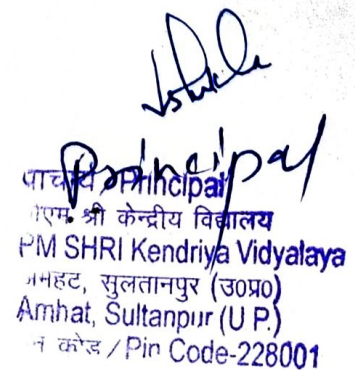 Principal
प्राचार्य / Principal
पीएम श्री केन्द्रीय विद्यालय
PM SHRI Kendriya Vidyalaya
अमहट, सुलतानपुर (उ०प्र०)
Amhat, Sultanpur (U P.)
पिन कोड / Pin Code-228001